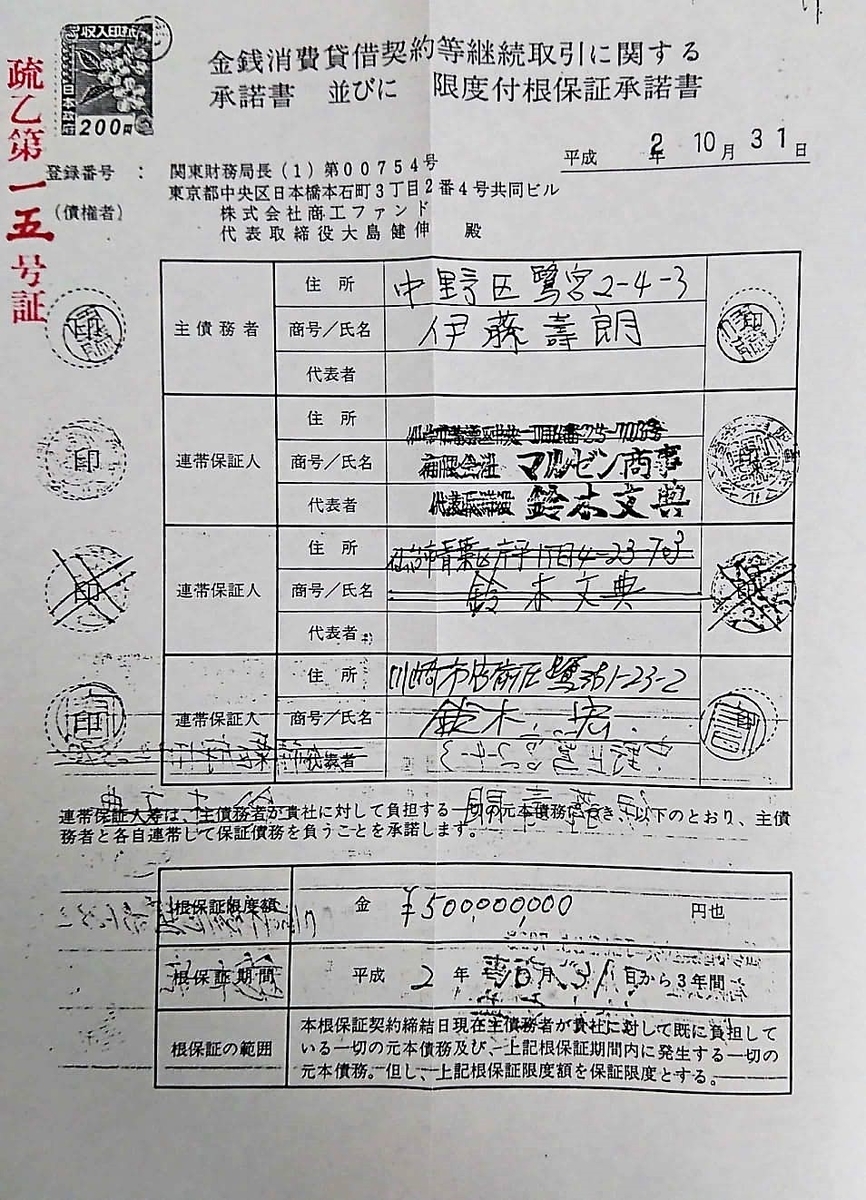 収入印紙
日本政府
200円
疏乙第一五号証
金銭消費貸借契約等継続取引に関する
承諾書 並びに 限度付根保証承諾書
平成 2年 10月 31日
登録番号 : 関東財務局長(1)第00754号
東京都中央区日本橋本石町3丁目2番4号共同ビル
(債権者) 株式会社商工ファンド
代表取締役大島健伸 殿
主債務者
住所 中野区鷺宮2-4-3
商号/氏名 伊藤壽朗
代表者
印
印
連帯保証人
住所
商号/氏名 有限会社 マルゼン商事
代表者 代表取締役 鈴木文典
印
連帯保証人
住所
商号/氏名 鈴木文典
代表者
印
連帯保証人
住所
商号/氏名 鈴木宏
代表者
印
連帯保証人等は、主債務者が貴社に対して負担する一切の元本債務につき、以下のとおり、主債
務者と各自連帯して保証債務を負うことを承諾します。
根保証限度額 金 ¥500,000,000 円也
根保証期間 平成 2年 10月 31日から3年間
根保証の範囲
本根保証契約締結日現在主債務者が貴社に対して既に負担して
いる一切の元本債務及び、上記根保証期間内に発生する一切の
元本債務。但し、上記根保証限度額を保証限度とする。